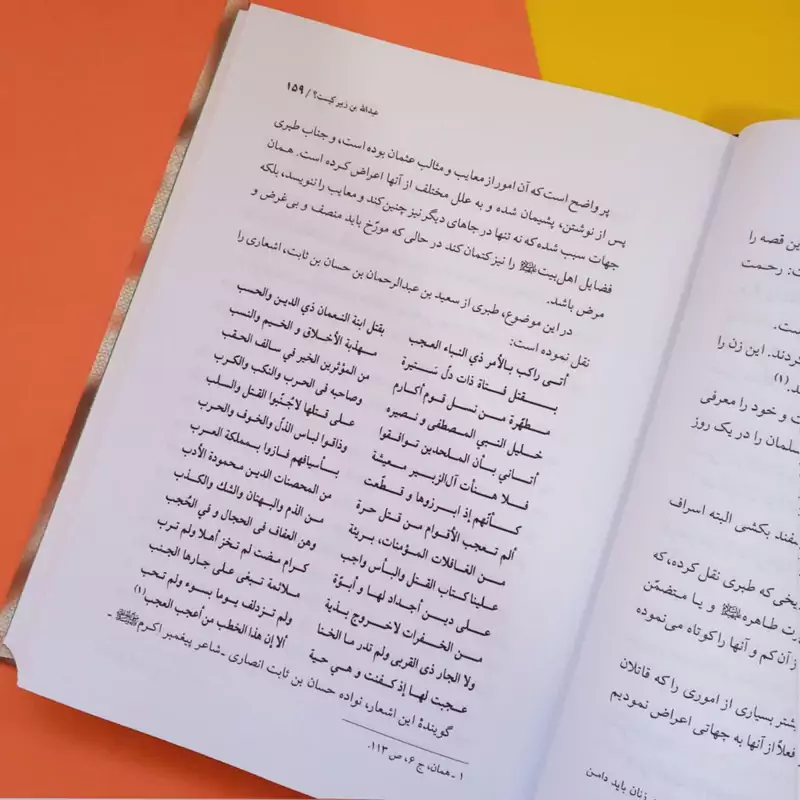 عبدالله بن زبیر کیست؟ / ۱۵۹
پر واضح است که آن امور از معایب و مثالب عثمان بوده است، و جناب طبری
پس از نوشتن، پشیمان شده و به علل مختلف از آنها اعراض کرده است. همان
جهات سبب شده که نه تنها در جاهای دیگر نیز چنین کند و معایب را ننویسد، بلکه
فضایل اهل‌بیت ﷺ را نیز کتمان کند در حالی که مورّخ باید منصف و بی‌غرض و
مرض باشد.
در این موضوع، طبری از سعید بن عبدالرحمان بن حسان بن ثابت، اشعاری را
نقل نموده است:
أتى راكب بالأمر ذي النباء العجب بقتل ابنة النعمان ذي الدين والحسب
بقتل فتاة ذات دلّ ستيرة مهذبة الأخلاق و الخيم والنسب
مطهّرة من نسل قوم أكارم من المؤثرين الخير في سالف الحقب
خليل النبي المصطفى و نصيره وصاحبه في الحرب والنكب والكرب
أتاني بأن الملحدين توافقوا على قتلها لاجُنّبوا القتل والسلب
فلا هنأت آل الزبير معيشة وذاقوا لباس الذلّ والخوف والحرب
كأنّهم إذ ابرزوها و قطّعت بأسيافهم فازوا بمملكة العرب
ألم تعجب الأقوام من قتل حرة من المحصنات الدين محمودة الأدب
من الغافلات المؤمنات، بريئة من الذم والبهتان والشك والكذب
علينا كتاب القتل والبأس واجب وهن العفاف في الحجال و في الحُجب
على دين أجداد لها و أبوّة كرام مضت لم تخز أهلا ولم ترب
من الخفرات لاخروج بذية ملائمة تبغى على جارها الجنب
ولا الجار ذي القربى ولم تدر ما الخنا ولم تزدلف يوما بسوء ولم تحب
عجبت لها إذ كفنت و هي حية ألا إن هذا الخطب من أعجب العجب(۱)
گویندهٔ این اشعار، نواده حسان بن ثابت انصاری ـ شاعر پیغمبر اکرم ﷺ ـ
۱ ـ همان، ج ۶، ص ۱۱۳.
این قصه را
ت: رحمت
است.
کردند. این زن را
د.(۱)
ت و خود را معرفی
سلمان را در یک روز
سفند بکشی البته اسراف
ریخی که طبری نقل کرده، که
رت طاهره ﷺ و یا متضمّن
از آن کم و آنها را کوتاه می‌نموده
یشتر بسیاری از اموری را که قاتلان
فعلاً از آنها به جهاتی اعراض نمودیم
زنان باید دامن